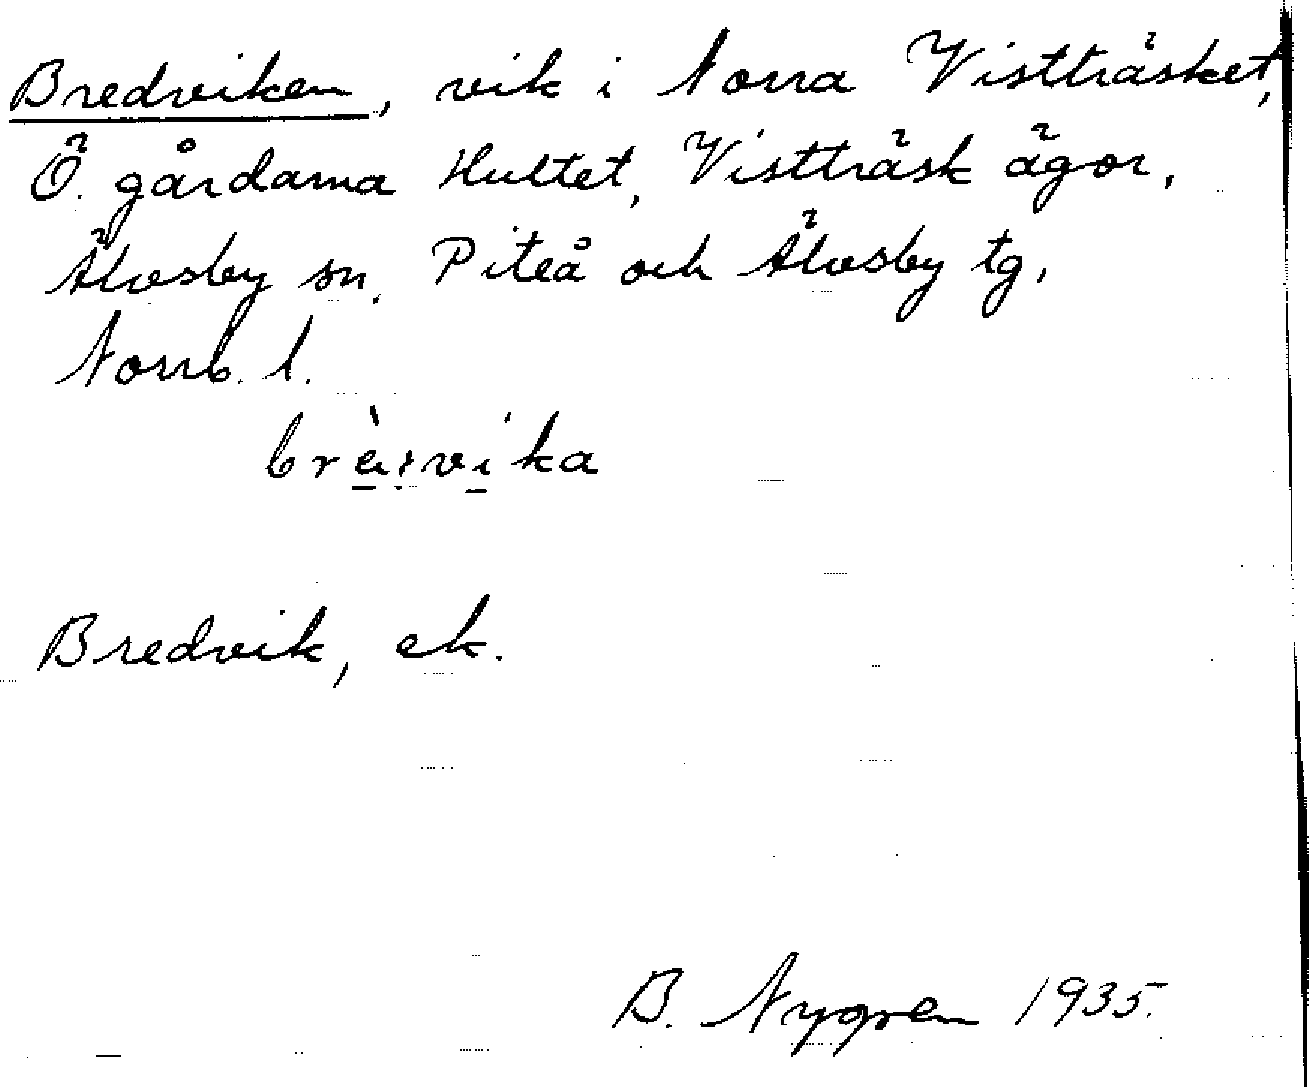 Bredviken, vik i Norra Vistträsket,
Ö. gårdarna Hultet, Vistträsk ägor,
Älvsby sn. Piteå och Älvsby tg.
Norrb. l.
brè:vika
Bredvik, ek.
B. Nygren 1935.